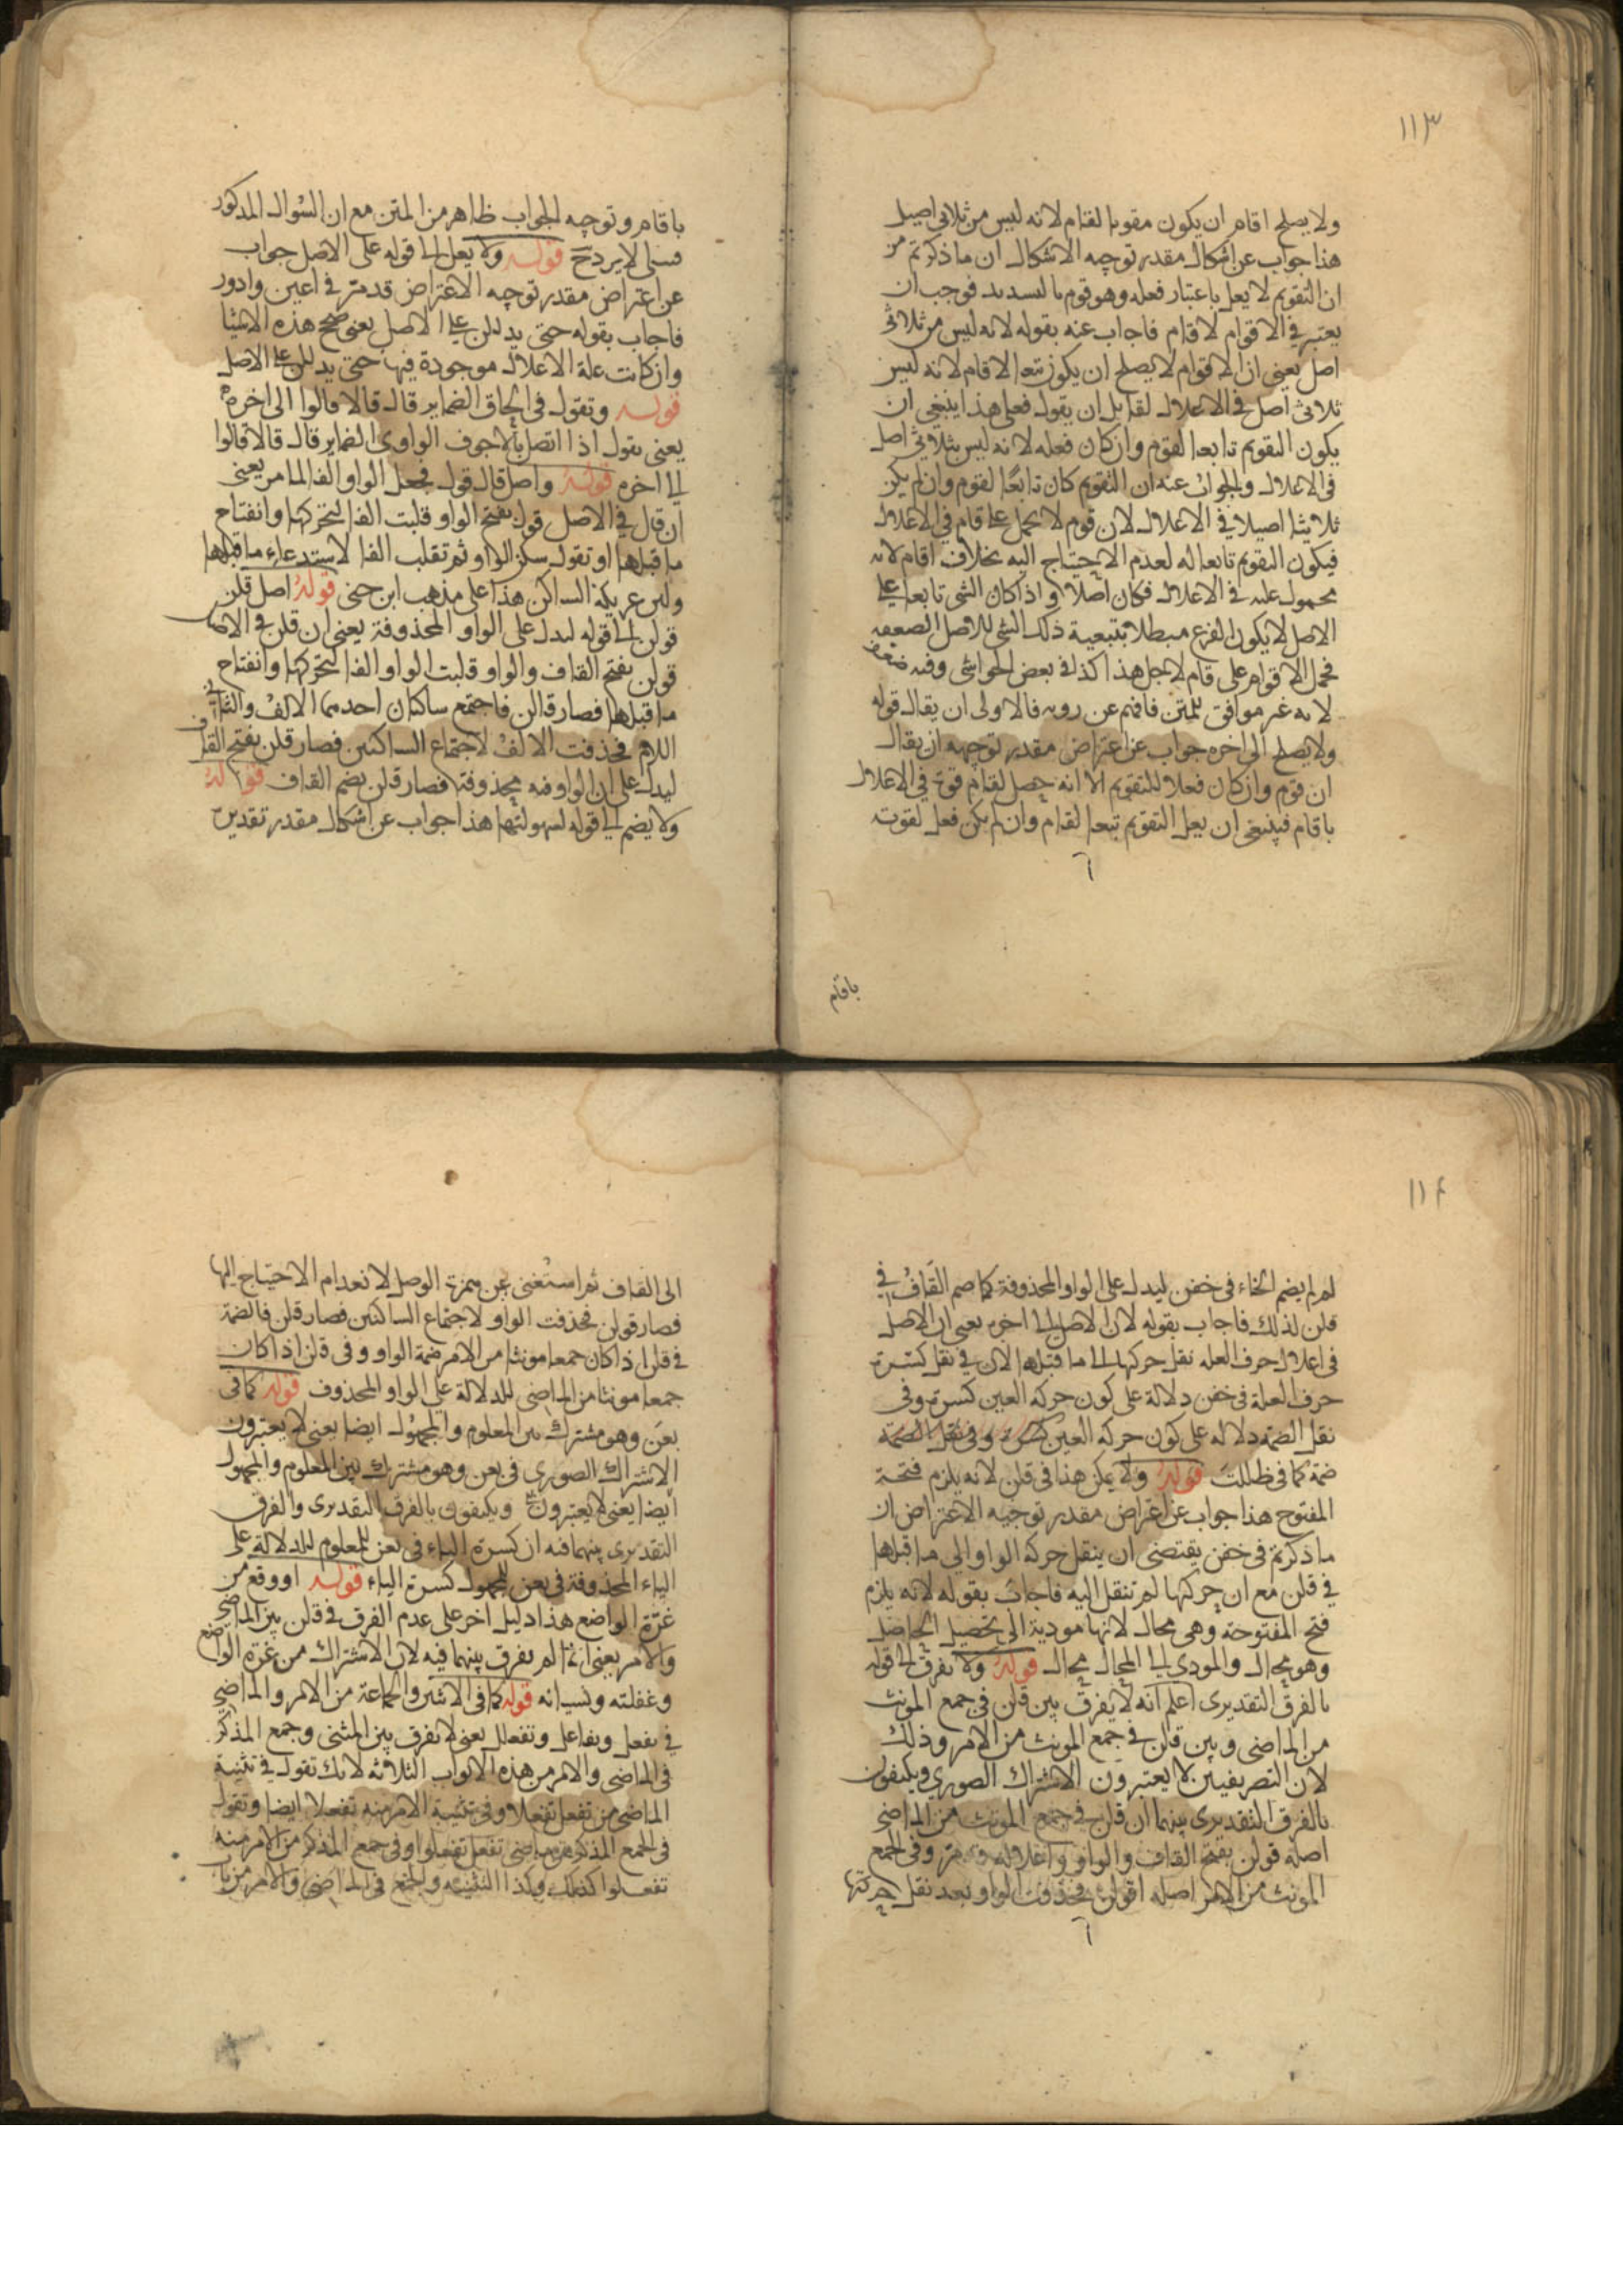 ١١٣
ولا يصلح اقام ان يكون مقويا لقام لانه ليس من ثلاثي اصيل
هذا جواب عن اشكال مقدر توجيه الاشكال ان ما ذكرتم من
ان التقويم لا يعل باعتبار فعله وهو قوم بالتسديد فوجب ان
يعتبر في الاقوام لا قام فاجاب عنه بقوله لانه ليس من ثلاثي
اصل يعني ان الاقوام لا يصلح ان يكون تبعا لاقام لانه ليس
ثلاثي اصل في الاعلال لقايل ان يقول فعلى هذا ينبغي ان
يكون التقويم تابعا لقوم وان كان فعله لانه ليس بثلاثي اصل
في الاعلال والجواب عنه ان التقويم كان تابعا لقوم وان لم يكن
ثلاثيا اصيلا في الاعلال لان قوم لا يحمل على قام في الاعلال
فيكون التقويم تابعا له لعدم الاحتياج اليه بخلاف اقام لانه
محمول عليه في الاعلال فكان اصلا واذا كان الشي تابعا على
الاصل لا يكون الفرع مبطلا بتبعية ذلك الشي للاصل لضعفه
فحمل الاقوام على قام لاجل هذا كذا في بعض الحواشي وفيه ضعف
لانه غير موافق للمتن فافهم عن رويه فالاولى ان يقال قوله
ولا يصلح الى اخره جواب عن اعتراض مقدر توجيهه ان يقال
ان قوم وان كان فعلا للتقويم الا انه حصل لقام قوة في الاعلال
باقام فينبغي ان يعل التقويم تبعا لقام وان لم يكن فعل لقوته
باقام
باقام وتوجيه الجواب ظاهر من المتن مع ان السوال المذكور
قوله ولا يعل الى قوله على الاصل جواب
عن اعتراض مقدر توجيه الاعتراض قد مر في اعين وادور
فاجاب بقوله حتى يدللن على الاصل يعني صح هذه الاشيا
وان كانت علة الاعلال موجودة فيها حتى يدللن على الاصل
قوله وتقول في الحاق الضماير قال قالا قالوا الى اخره
يعني تقول اذا اتصل بالاجوف الواوي الضماير قال قالا قالوا
الى اخره قوله واصل قال قول فجعل الواو الفا لما مر يعني
ان قال في الاصل قول بفتح الواو قلبت الفا لتحركها وانفتاح
ما قبلها او تقول سكن الواو ثم تقلب الفا لاستدعاء ما قبلها
ولين عريكة الساكن هذا على مذهب ابن جنى قوله اصل قلن
قولن الى قوله ليدل على الواو المحذوفة يعني ان قلن في الاصل
قولن بفتح القاف والواو قلبت الواو الفا لتحركها وانفتاح
ما قبلها فصار قالن فاجتمع ساكنان احدهما الالف والثاني
اللام فحذفت الالف لاجتماع الساكنين فصار قلن بفتح القاف
ليدل على ان الواو فيه محذوفة فصار قلن بضم القاف قوله
ولا يضم الى قوله لسهولتها هذا جواب عن اشكال مقدر تقديره
١١٤
لم لم يضم الخاء في خفن ليدل على الواو المحذوفة كما ضم القاف في
قلن لذلك فاجاب بقوله لان الاصل الى اخره يعني ان الاصل
في اعلال حرف العله نقل حركتها الى ما قبلها لان في نقل كسرة
حرف العلة في خفن دلالة على كون حركة العين كسرة وفي
نقل الضمة دلاله على كون حركة العين كسرة وفي نقل الضمة
ضمة كما في ظللت قوله ولا يمكن هذا في قلن لانه يلزم فتحة
المفتوح هذا جواب عن اعتراض مقدر توجيه الاعتراض ان
ما ذكرتم في خفن يقتضي ان ينقل حركة الواو الى ما قبلها
في قلن مع ان حركتها لم تنقل اليه فاجاب بقوله لانه يلزم
فتح المفتوحة وهي محال لانها مودية الى تحصيل الحاصل
وهو محال والمودي الى المحال محال قوله ولا يفرق الى قوله
بالفرق التقديرى اعلم انه لا يفرق بين قلن في جمع المونث
من الماضي وبين قلن في جمع المونث من الامر وذلك
لان التصريفيين لا يعتبرون الاشتراك الصوري ويكتفون
بالفرق التقديرى بينهما ان قلن في جمع المونث من الماضي
اصله قولن بفتح القاف والواو واعلاله قد مر وفي الجمع
المونث من الامر اصله اقولن فحذفت الواو بعد نقل حركتها
الى القاف ثم استغنى عن همزة الوصل لانعدام الاحتياج اليها
فصار قولن فحذفت الواو لاجتماع الساكنين فصار قلن فالضمة
في قلن اذا كان جمعا مونثا من الامر ضمة الواو وفي قلن اذا كان
جمعا مونثا من الماضي للدلالة على الواو المحذوف قوله كما في
بعن وهو مشترك بين المعلوم والمجهول ايضا يعني لا يعتبرون
الاشتراك الصوري في بعن وهو مشترك بين المعلوم والمجهول
ايضا يعني لا يعتبرون ويكتفون بالفرق التقديرى والفرق
التقديرى بينهما فيه ان كسرة الباء في بعن للمعلوم للدلالة على
الياء المحذوفة في بعن للمجهول كسرة الياء قوله او وقع من
غرة الواضع هذا دليل اخر على عدم الفرق في قلن بين الماضي
والامر يعني انما لم يفرق بينهما فيه لان الاشتراك من غرة الواضع
وغفلته ونسيانه قوله كما في الاثنين والجماعة من الامر والماضي
في تفعل وتفاعل وتفعلل يعني لا تفرق بين المثنى وجمع المذكر
في الماضي والامر من هذه الابواب الثلاثه لانك تقول في تثنية
الماضي من تفعل تفعلا وفي تثنية الامر منه تفعلا ايضا وتقول
في الجمع المذكر من ماضي تفعل تفعلوا وفي جمع المذكر من الامر منه
تفعلوا كذلك وكذا التثنيه والجمع في الماضي والامر من باب